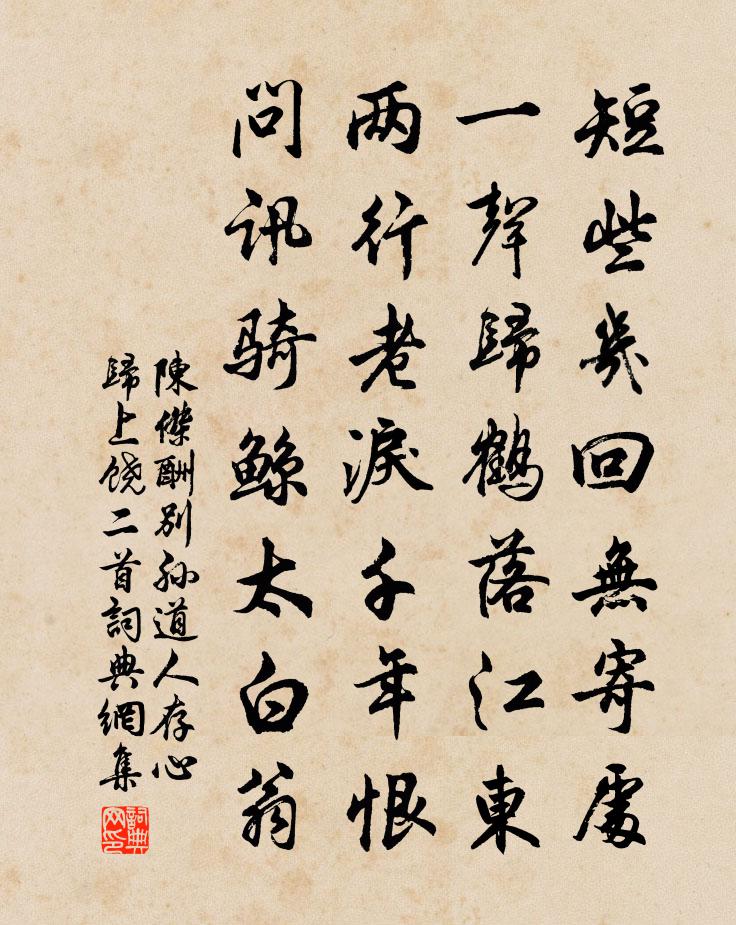 短些幾回無寄處
一聲歸鶴落江東
两行老淚千年恨
問訊騎鯨太白翁
陳傑酬别孙道人存心
歸上饶二首詞典網集
詞典网印